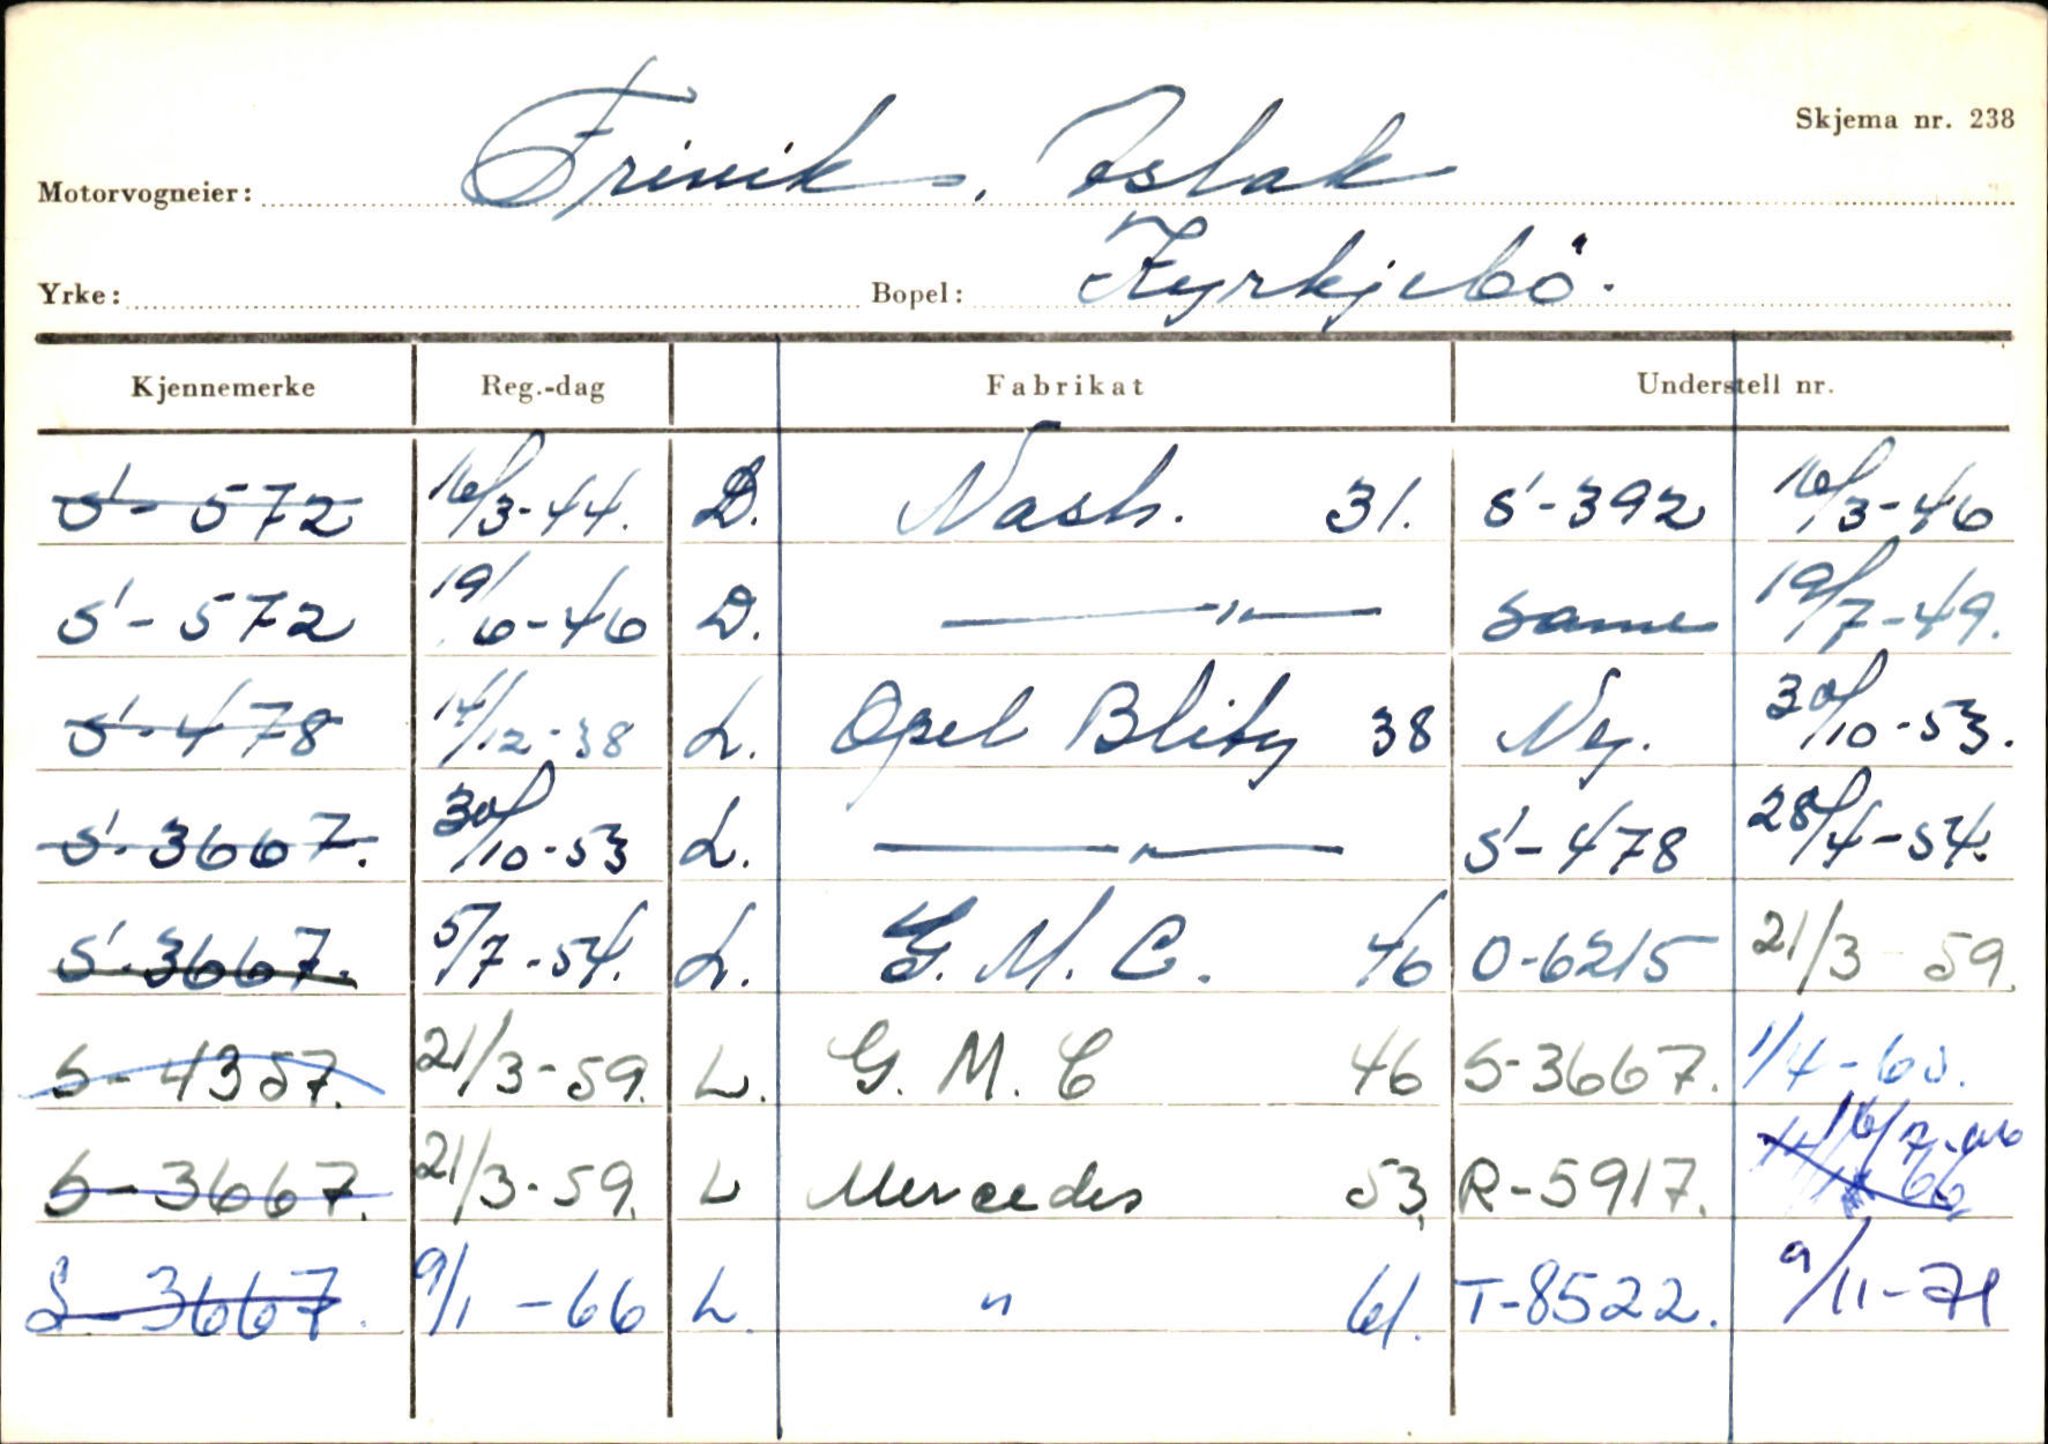 Skjema nr. 238
Motorvogneier: Frivik, Aslak
Yrke: Bopel: Kyrkjebö.
Kjennemerke Reg.-dag Fabrikat Understell nr.
S-572 16/3-44. D. Nash. 31. S-392 16/3-46
S-572 19/6-46 D. —"— Same 19/7-49.
S-478 14/12-38 L. Opel Blitz 38 Ny. 30/10-53.
S-3667. 30/10-53 L. —"— S-478 28/4-54.
S-3667. 5/7-54. L. G. M. C. 46 O-6215 21/3-59.
S-4357. 21/3-59. L. G. M. C 46 S-3667. 1/4-60.
S-3667. 21/3-59. L Mercedes 53, R-5917. 16/7-66
S-3667. 9/1-66 L. " 61. T-8522. 9/11-71